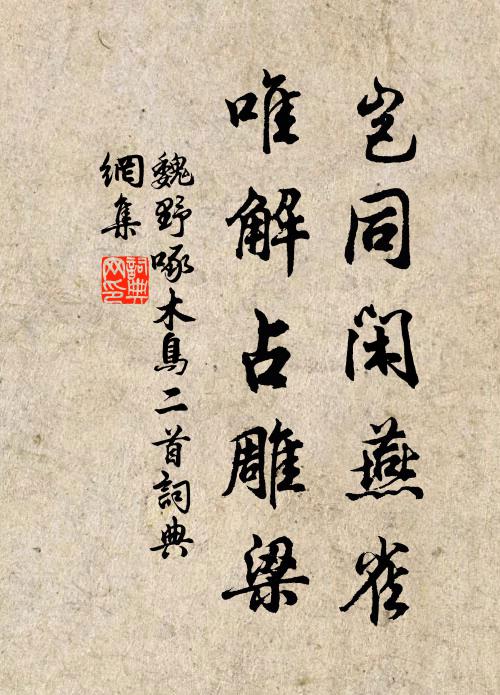 岂同闲燕雀
唯解占雕梁
魏野啄木鳥二首詞典
網集
詞典
网印